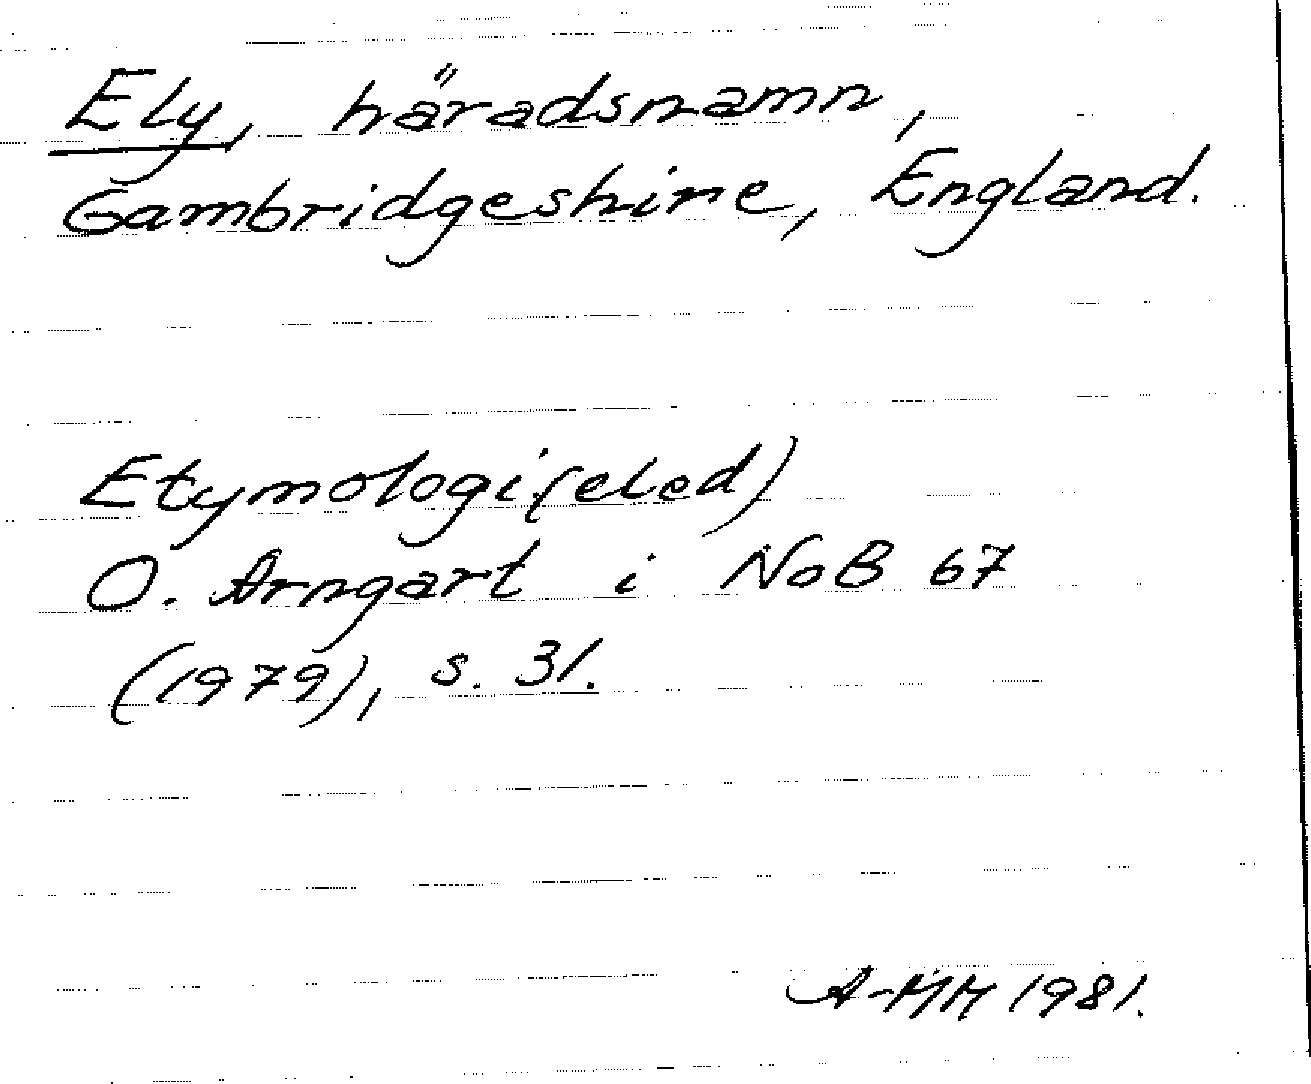 Ely, häradsnamn,
Cambridgeshire, England.
Etymologi(eled)
O. Arngart i NoB 67
(1979), s. 31.
A-MH 1981.